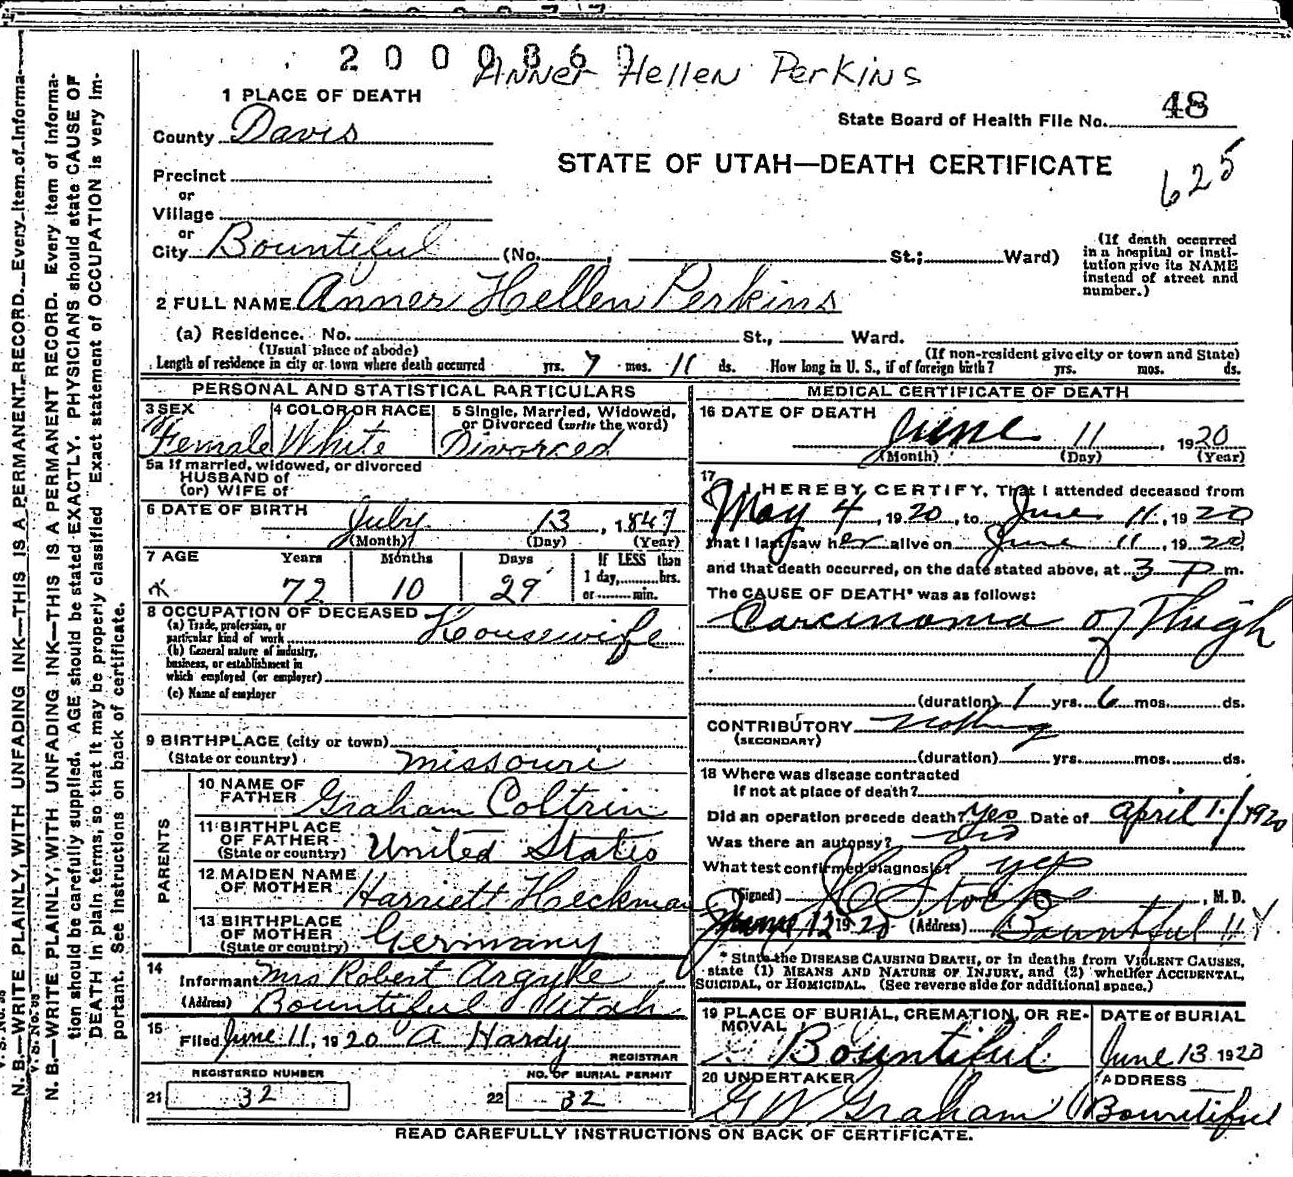 2000860
Anner Hellen Perkins
1 PLACE OF DEATH
State Board of Health File No. 48
County Davis
STATE OF UTAH—DEATH CERTIFICATE
625
Precinct
or
Village
or
City Bountiful (No. , St.; Ward)
(If death occurred in a hospital or institution give its NAME instead of street and number.)
2 FULL NAME Anner Hellen Perkins
(a) Residence. No. St., Ward.
(Usual place of abode) (If non-resident give city or town and State)
Length of residence in city or town where death occurred yrs. 7 mos. 11 ds. How long in U. S., if of foreign birth? yrs. mos. ds.
PERSONAL AND STATISTICAL PARTICULARS
3 SEX Female
4 COLOR OR RACE White
5 Single, Married, Widowed, or Divorced (write the word) Divorced
5a If married, widowed, or divorced
HUSBAND of
(or) WIFE of
6 DATE OF BIRTH July 13, 1847
(Month) (Day) (Year)
7 AGE Years Months Days If LESS than
1 day, hrs.
72 10 29 or min.
8 OCCUPATION OF DECEASED
(a) Trade, profession, or particular kind of work Housewife
(b) General nature of industry, business, or establishment in which employed (or employer)
(c) Name of employer
9 BIRTHPLACE (city or town)
(State or country) Missouri
PARENTS
10 NAME OF FATHER Graham Coltrin
11 BIRTHPLACE OF FATHER (State or country) United States
12 MAIDEN NAME OF MOTHER Harriett Heckman
13 BIRTHPLACE OF MOTHER (State or country) Germany
14 Informant Mrs Robert Argyle
(Address) Bountiful Utah
15 Filed June 11, 1920 A Hardy
REGISTRAR
REGISTERED NUMBER NO. OF BURIAL PERMIT
21 32 22 32
MEDICAL CERTIFICATE OF DEATH
16 DATE OF DEATH June 11, 1920
(Month) (Day) (Year)
17 I HEREBY CERTIFY, That I attended deceased from
May 4, 1920, to June 11, 1920
that I last saw her alive on June 11, 1920,
and that death occurred, on the date stated above, at 3 P m.
The CAUSE OF DEATH* was as follows:
Carcinoma of Thigh
(duration) 1 yrs. 6 mos. ds.
CONTRIBUTORY Nothing
(SECONDARY)
(duration) yrs. mos. ds.
18 Where was disease contracted
if not at place of death?
Did an operation precede death? Yes Date of April 1, 1920
Was there an autopsy? No
What test confirmed diagnosis? yes
(Signed) Stocks, M. D.
June 12 1920 (Address) Bountiful U
* State the DISEASE CAUSING DEATH, or in deaths from VIOLENT CAUSES, state (1) MEANS AND NATURE OF INJURY, and (2) whether ACCIDENTAL, SUICIDAL, or HOMICIDAL. (See reverse side for additional space.)
19 PLACE OF BURIAL, CREMATION, OR REMOVAL Bountiful
DATE OF BURIAL June 13 1920
20 UNDERTAKER G W Graham
ADDRESS Bountiful
READ CAREFULLY INSTRUCTIONS ON BACK OF CERTIFICATE.
V. S. No. 98
N. B.—WRITE PLAINLY, WITH UNFADING INK—THIS IS A PERMANENT RECORD. Every item of informa-
N. B.—WRITE PLAINLY, WITH UNFADING INK—THIS IS A PERMANENT RECORD. Every item of informa-
tion should be carefully supplied. AGE should be stated EXACTLY. PHYSICIANS should state CAUSE OF
DEATH in plain terms, so that it may be properly classified. Exact statement of OCCUPATION is very im-
portant. See instructions on back of certificate.